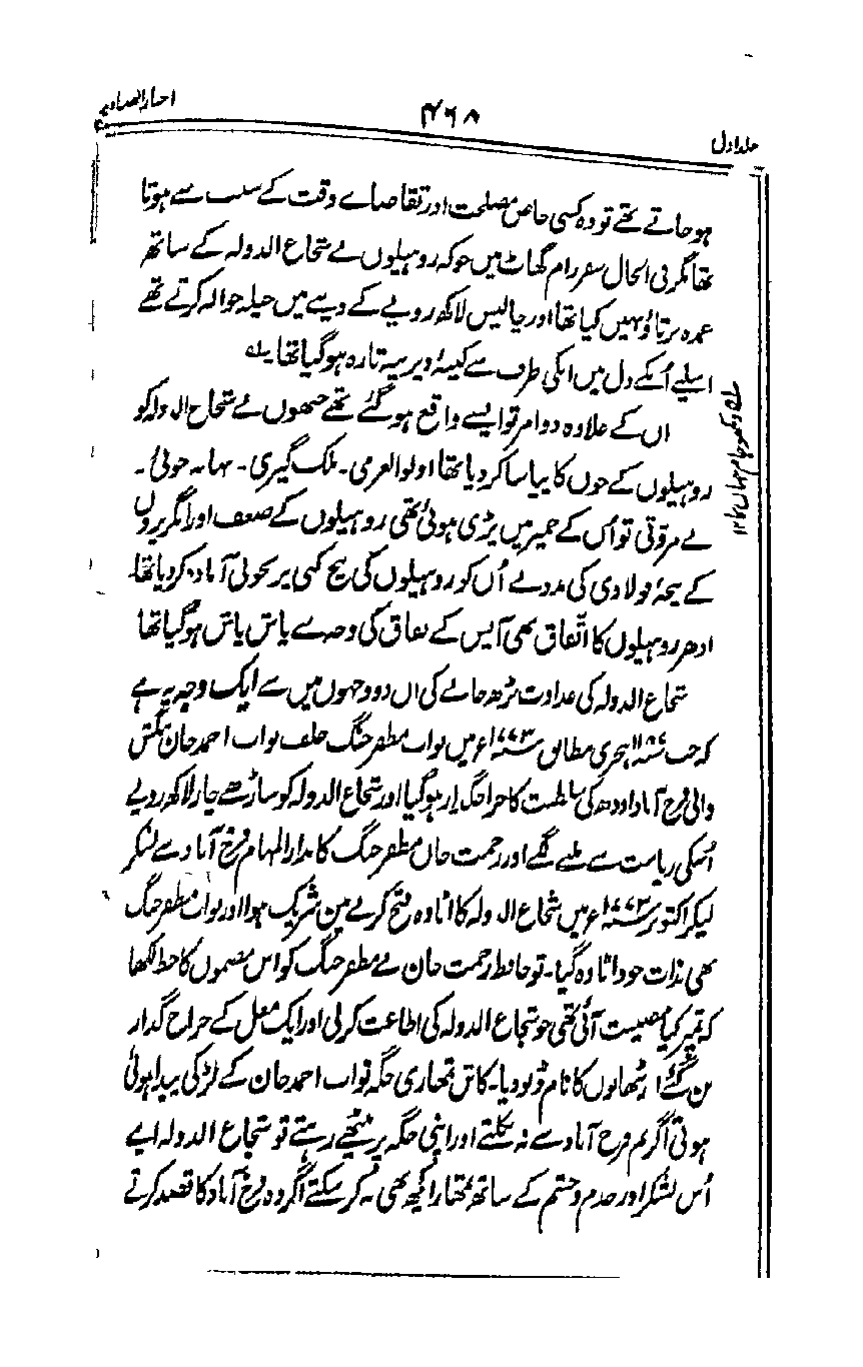 اخبار الصنادید
۴۶۸
جلد اول
ہوجاتے تھے تو وہ کسی خاص مصلحت اور تقاضاے وقت کے سبب سے ہوتا
تھا مگر فی الحال سفر رام گھاٹ میں جو کہ روہیلوں نے شجاع الدولہ کے ساتھ
عمدہ برتاؤ نہیں کیا تھا اور چالیس لاکھ روپے کے دینے میں حیلہ حوالہ کرتے تھے
اسلیے اُسکے دل میں انکی طرف سے کینۂ دیرینہ تازہ ہوگیا تھا ؎۱
ان کے علاوہ دو امر تو ایسے واقع ہوگئے تھے جنھوں نے شجاع الدولہ کو
روہیلوں کے خون کا پیاسا کردیا تھا اولوالعزمی۔ ملک گیری۔ بہانہ جوئی۔
بے مروّتی تو اُس کے خمیر میں پڑی ہوئی تھی روہیلوں کے ضعف اور انگریزوں
کے پنجۂ فولادی کی مدد نے اُن کو روہیلوں کی بیخ کنی پر بخوبی آمادہ کردیا تھا۔
ادھر روہیلوں کا اتّفاق بھی آپس کے نفاق کی وجہ سے پاش پاش ہوگیا تھا
شجاع الدولہ کی عداوت بڑھ جانے کی ان دو وجہوں میں سے ایک وجہ یہ ہے
کہ جب ۱۱۸۷ ہجری مطابق ۱۷۷۳ء میں نواب مظفر جنگ خلف نواب احمد خان بنگش
والی فرخ آباد اودھ کی سلطنت کا خراجگذار ہوگیا اور شجاع الدولہ کو ساڑھے چار لاکھ روپے
اُسکی ریاست سے ملنے لگے اور رحمت خان مظفر جنگ کا مدار المہام فرخ آباد سے لشکر
لیکر اکتوبر ۱۷۷۳ء میں شجاع الدولہ کا اٹاوہ فتح کرنے میں شریک ہوا اور نواب مظفر جنگ
بھی بذات خود اٹاوہ گیا۔ تو حافظ رحمت خان نے مظفر جنگ کو اس مضمون کا خط لکھا
کہ تمپر کیا مصیبت آئی تھی جو شجاع الدولہ کی اطاعت کرلی اور ایک مغل کے خراج گذار
بن گئے پٹھانوں کا نام ڈبو دیا۔ کاش تمھاری جگہ نواب احمد خان کے لڑکی پیدا ہوئی
ہوتی اگر تم فرخ آباد سے نہ نکلتے اور اپنی جگہ پر بیٹھے رہتے تو شجاع الدولہ اپنے
اُس لشکر اور خدم و حشم کے ساتھ تمھارا کچھ بھی نہ کرسکتے اگر وہ فرخ آباد کا قصد کرتے
؎۱ دیکھو جام جہاں نما ۱۲